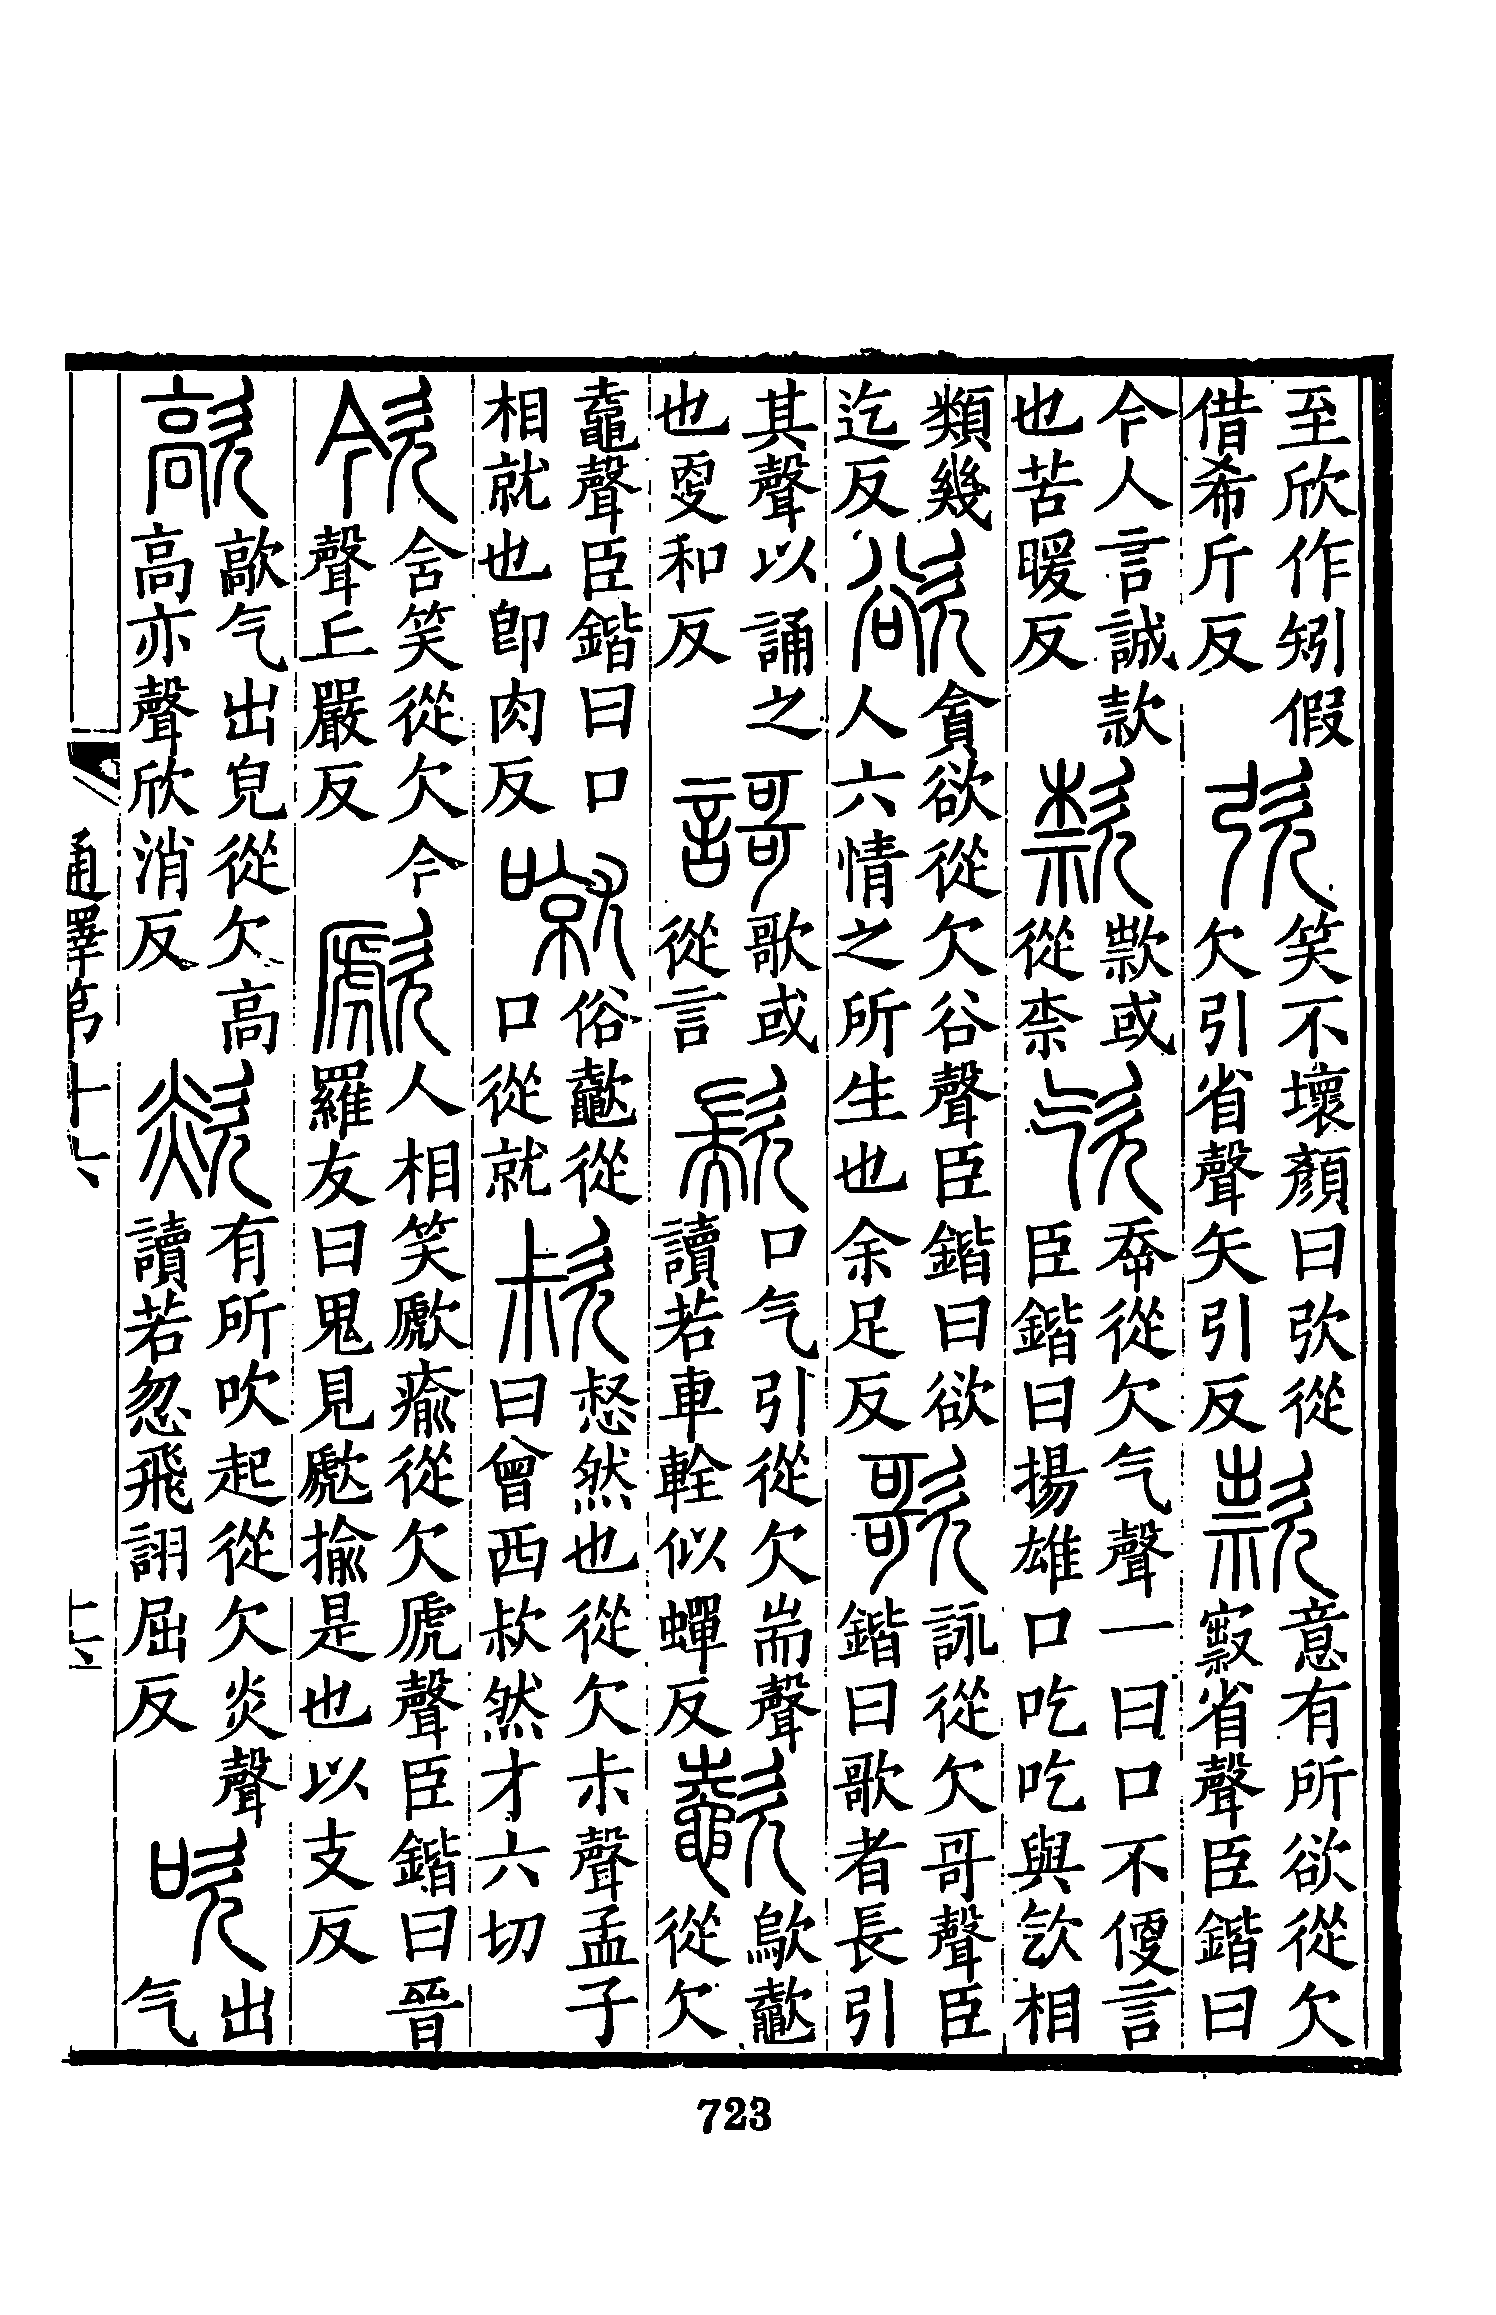 至欣作矧假
借希斤反
弞
笑不壞顏曰弞從
欠引省聲矢引反
款
意有所欲從欠
㱁省聲臣鍇曰
今人言誠款
也苦暖反
㱁
款或
從柰
㰟
𡴘從欠气聲一曰口不便言
臣鍇曰揚雄口吃吃與㰟相
類幾
迄反
欲
貪欲從欠谷聲臣鍇曰欲
人六情之所生也余足反
歌
詠從欠哥聲臣
鍇曰歌者長引
其聲以誦之
也更和反
謌
歌或
從言
歂
口气引從欠耑聲
讀若車輇似蟬反
𣤶
歍𣤶
從欠
鼀聲臣鍇曰口
相就也卽肉反
噈
俗𣤶從
口從就
㰗
惄然也從欠尗聲孟子
曰曾西㰗然才六切
㰸
含笑從欠今
聲丘嚴反
歋
人相笑歋瘉從欠虒聲臣鍇曰晉
羅友曰鬼見歋揄是也以支反
歊
歊气出皃從欠高
高亦聲欣消反
欻
有所吹起從欠炎聲
讀若忽飛詡屈反
吹
出
气
通釋第十六
十六
723